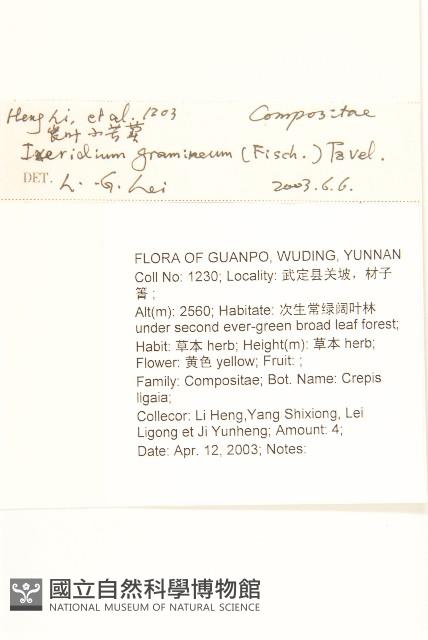 Heng Li, et al. 1203 Compositae
窄叶小苦荬
Ixeridium gramineum (Fisch.) Tzvel.
DET. L. -G. Lei 2003.6.6.
FLORA OF GUANPO, WUDING, YUNNAN
Coll No: 1230; Locality: 武定县关坡，材子
箐 ;
Alt(m): 2560; Habitate: 次生常绿阔叶林
under second ever-green broad leaf forest;
Habit: 草本 herb; Height(m): 草本 herb;
Flower: 黄色 yellow; Fruit: ;
Family: Compositae; Bot. Name: Crepis
ligaia;
Collecor: Li Heng,Yang Shixiong, Lei
Ligong et Ji Yunheng; Amount: 4;
Date: Apr. 12, 2003; Notes:
國立自然科學博物館
NATIONAL MUSEUM OF NATURAL SCIENCE